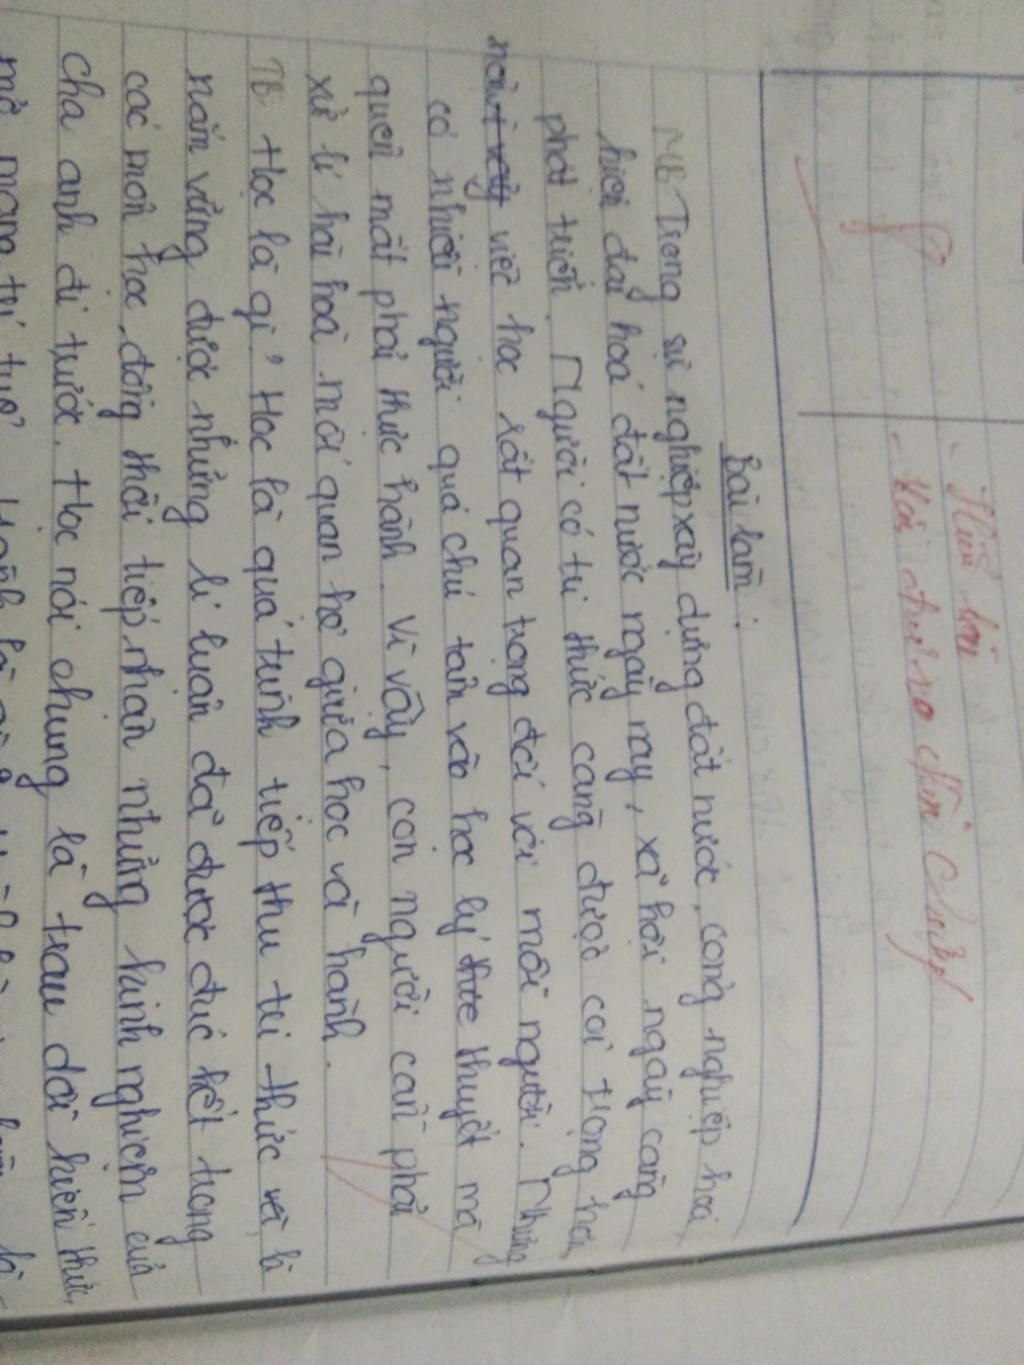 - Hiểu bài
- Bài làm:
MB Trong sự nghiệp xây dựng đất nước, công nghiệp hoá
hiện đại hoá đất nước ngày nay, xã hội ngày càng
phát triển. Người có tri thức càng được coi trọng hơn,
việc học rất quan trọng đối với mỗi người. Nhưng
có nhiều người quá chú tâm vào học lý thuyết mà
quên mất phải thực hành. Vì vậy, con người cần phải
xử lí hài hoà mối quan hệ giữa học và hành.
TB Học là gì? Học là quá trình tiếp thu tri thức và là
nắm vững được những lí luận đã được đúc kết trong
các môn học, đồng thời tiếp nhận những kinh nghiệm của
cha anh đi trước. Học nói chung là trau dồi kiến thức,
mở mang trí tuệ.